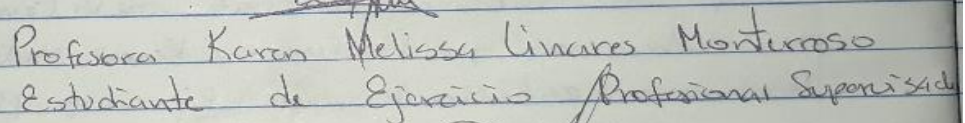 Profesora Karen Melissa Linares Monterroso
Estudiante de Ejercicio Profesional Supervisado